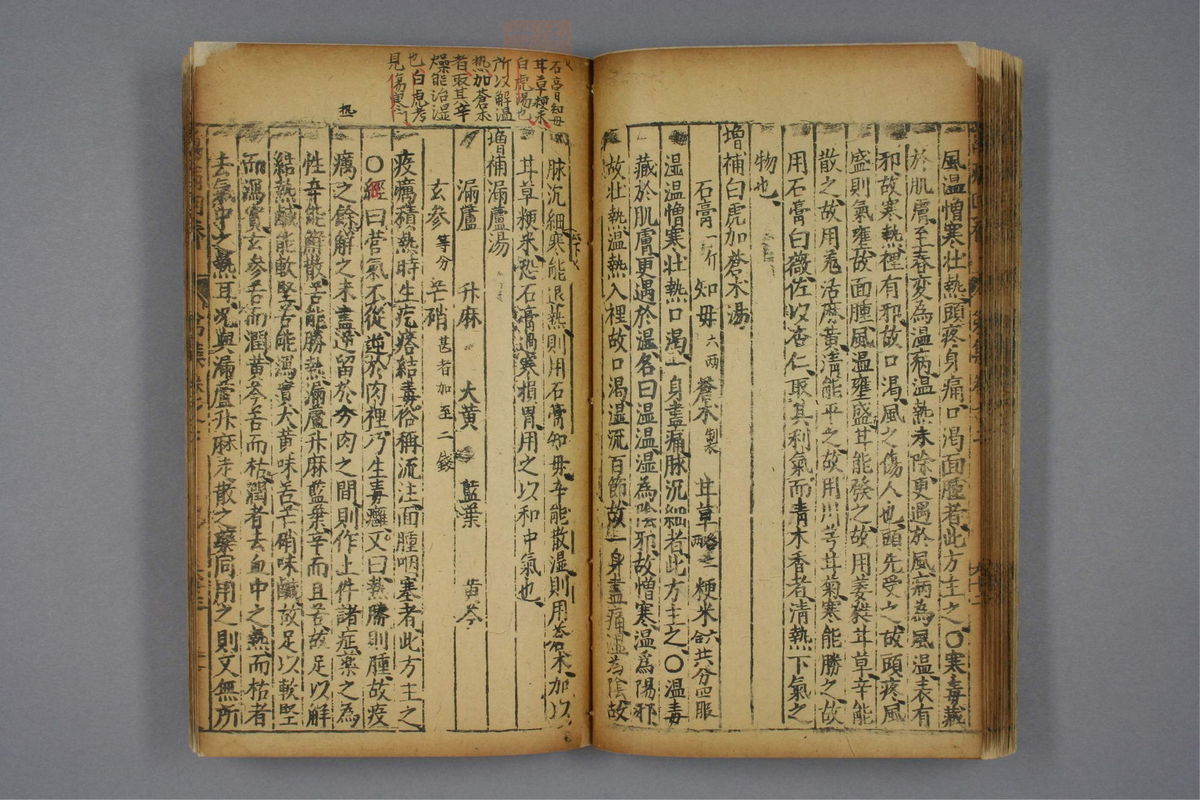 風温憎寒壮熱頭疼身痛口渇面腫者此方主之〇寒毒藏
於肌膚至春変為温病温熱未除更遇於風病為風温表有
邪故寒熱裡有邪故口渇風之傷人也頭先受之故頭疼風
盛則氣壅故面腫風温壅盛耳能發之故用姜
散之故用羌活麻黄清能平之故用川芎甘菊寒能勝之故
用石膏白薇佐以杏仁取其利氣而青木香者清熱下氣之
物也
増補白虎加蒼术湯
石膏一斤 知母六両 蒼术製 甘草 粳米六合 共分四服
湿温憎寒壮熱口渇一身盡痛脉沉細者此方主之〇温毒
藏於肌膚更遇於温名曰温温湿為陰邪故憎寒温為陽邪
故壮熱温熱入裡故口渇湿流百節故一身盡痛湿為陰故
脉沉細寒能退熱則用石膏知母辛能散湿則用蒼术加以
甘草粳米恐石膏過寒損胃用之以和中氣也
増補漏蘆湯
漏蘆 升麻 大黄 藍葉 黄芩
玄参等分 芒硝甚者加至二錢
疫癘積熱時生疙瘩結毒俗称流注面腫咽塞者此方主之
〇經曰营氣不從逆於肉裡乃生毒癰又曰熱勝則腫故疫
癘之餘解之未盡濡留於分肉之間則作上件諸症薬之為
性辛能解散苦能勝熱漏蘆升麻藍葉辛而且苦故足以解
結熱鹹能軟堅苦能瀉實大黄味苦芒硝味鹹故足以軟堅
而瀉實玄参苦而潤黄芩苦而枯潤者去血中之熱而枯者
去氣中之熱耳况與漏蘆升麻辛散之藥同用之則又無所
石膏知母
甘草粳米
白虎湯也
所以解温
热加蒼术
者取其辛
燥能治湿
也白虎考
見傷寒
热